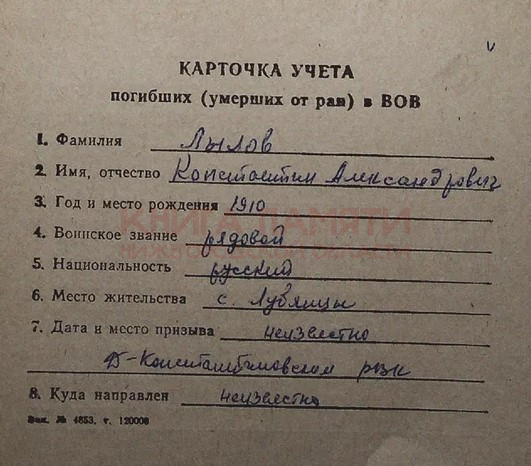 КАРТОЧКА УЧЕТА
погибших (умерших от ран) в ВОВ
1. Фамилия Лылов
2. Имя, отчество Константин Александрович
3. Год и место рождения 1910
КНИГА ПАМЯТИ
4. Воинское звание рядовой
5. Национальность русский
6. Место жительства с. Лубянцы
7. Дата и место призыва неизвестно
Д-Константиновским рвк
8. Куда направлен неизвестно
Зак. № 4853, т. 120000